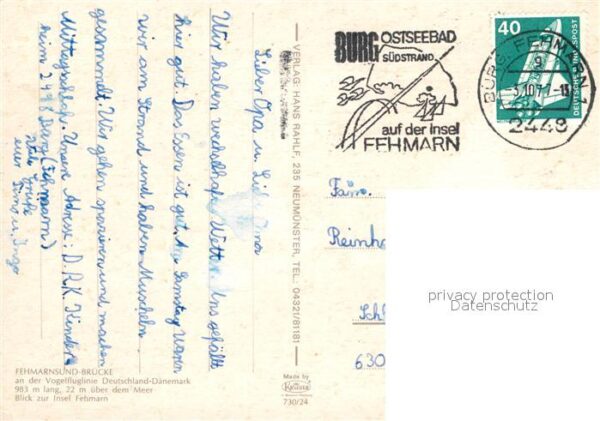 Lieber Opa u. Liebe Oma
Wir haben wechselhaftes Wetter. Uns gefällt
hier gut. Das Essen ist gut. Am Samstag waren
wir am Strand und haben Muscheln
gesammelt. Wir gehen spazieren und machen
Mittagsschlaf. Unsere Adresse: D.R.K. Kinder
heim 2448 Burg (Fehmarn)
Viele Grüße
euer
u. Ingo
FEHMARNSUND-BRÜCKE
an der Vogelfluglinie Deutschland-Dänemark
983 m lang, 22 m über dem Meer
Blick zur Insel Fehmarn
VERLAG: HANS RAHLF, 235 NEUMÜNSTER, TEL.: 04321/81181
Made by
Krüger
730/24
BURG OSTSEEBAD
SÜDSTRAND
auf der Insel
FEHMARN
BURG, FEHMARN
a
-5.10.77-11
2448
40
DEUTSCHE BUNDESPOST
Fam.
Reinh
Sch
630
privacy protection
Datenschutz